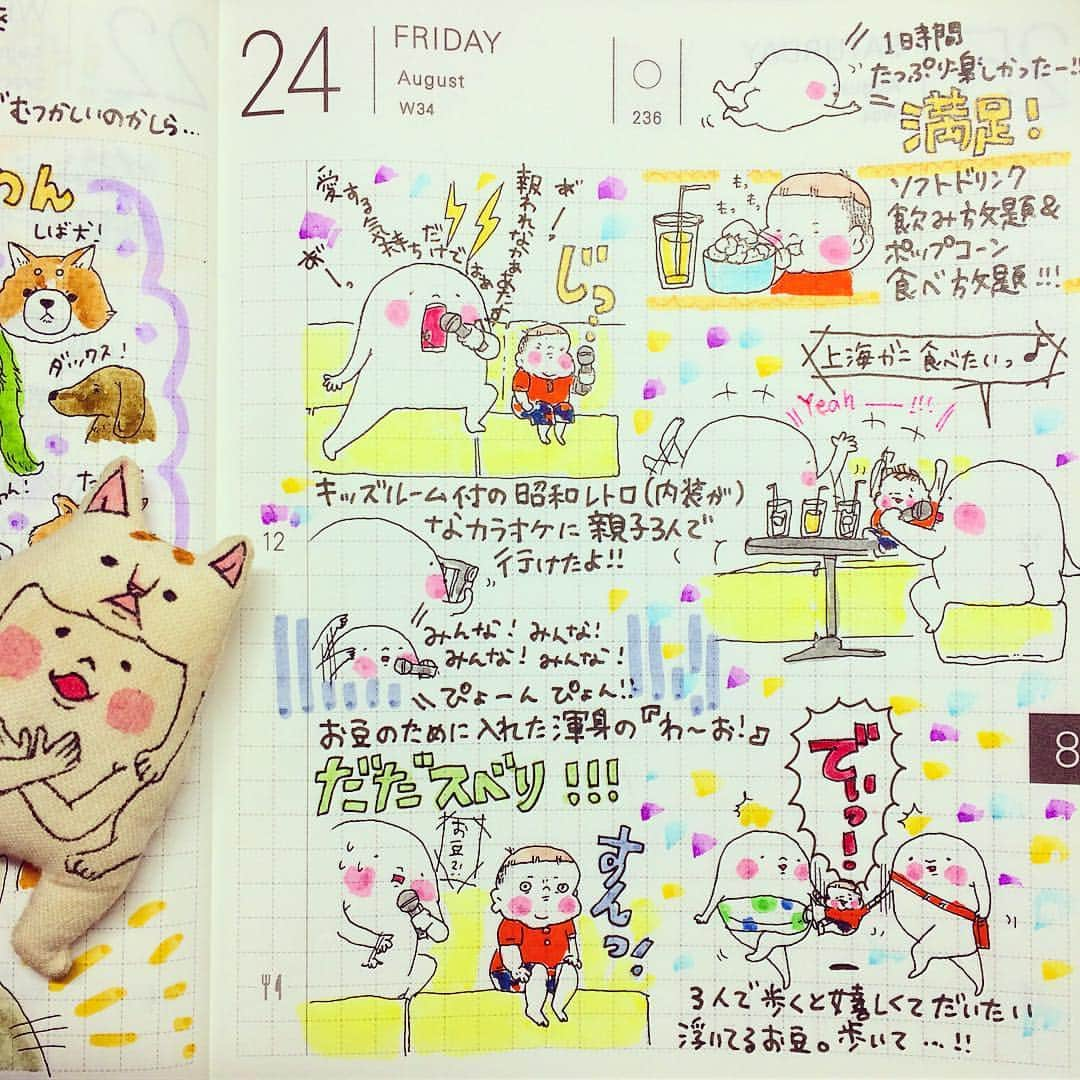 むつかしいのかしら…
わん
しば犬！
ダックス！
24
FRIDAY
August
W34
236
1時間
たっぷり楽しかったー!!
満足！
愛する気持ちだけでは
報われなかぁぁ
じっ…
もっ もっ
ソフトドリンク
飲み放題＆
ポップコーン
食べ放題!!!
上海がに食べたいっ♪
Yeah——!!!
キッズルーム付の昭和レトロ(内装が)
なカラオケに親子3人で
行けたよ!!
12
みんな！みんな！
みんな！みんな！
ぴょーん ぴょん!!
お豆のために入れた渾身の『わ〜お！』
だだスベり!!!
8
お豆？！
すんっ！
でぃっー！
3人で歩くと嬉しくてだいたい
浮いてるお豆。歩いて…!!